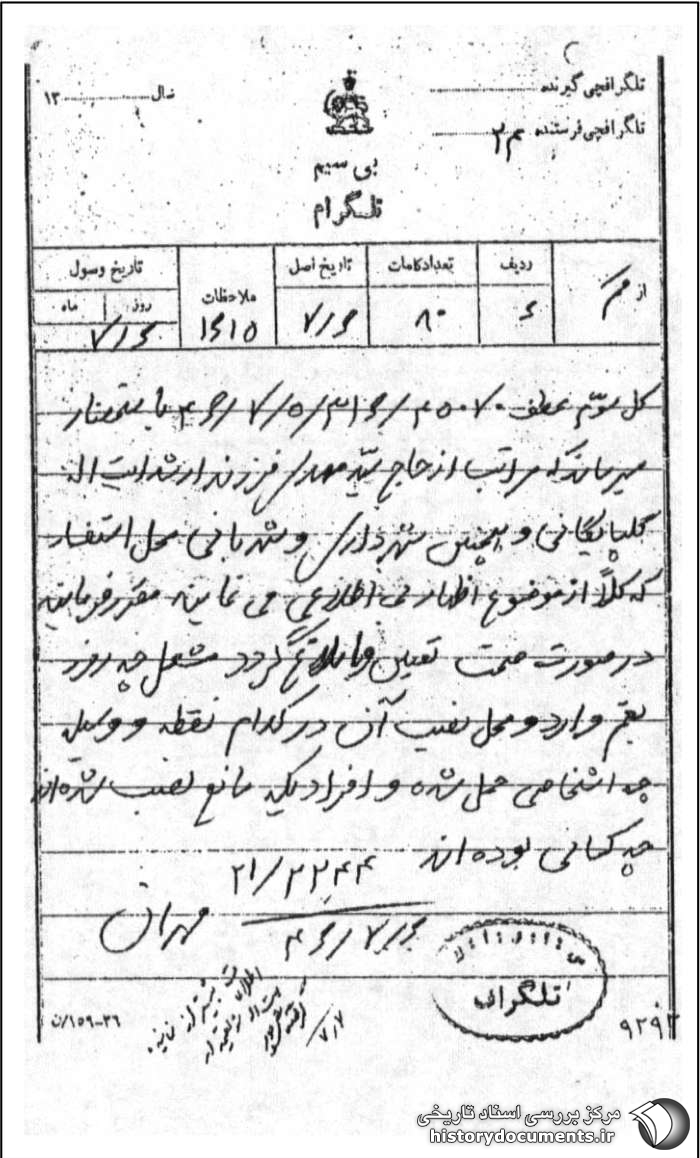 تلگرافچی گیرنده
سال ۱۳
تلگرافچی فرستنده
بی سیم
تلگرام
از
ردیف
تعداد کلمات
تاریخ اصل
ملاحظات
تاریخ وصول
روز
ماه
۶
۸۰
۷/۶
۱۶۱۵
۷/۶
کل سوم عطف ۳۱۶/۴۵۰۷۰/۷/۵/۴۶ باستحضار
میرساند مراتب از حاج سید مهدی فرزند ارشد ایت اله
گلپایگانی و همچنین شهرداری و شهربانی محل استفسار
که کلاً از موضوع اظهار بی اطلاعی می نمایند مقرر فرمایید
در صورت صحت تعیین و ابلاغ گردد مشعل چه روز
بقم وارد و محل نصب آن در کدام نقطه و وسیله
چه اشخاصی حمل شده و افرادیکه مانع نصب شده‌اند
چه کسانی بوده‌اند
۲۱/۲۲۴۴
۴۶/۷/۶ مهران
تلگراف
۷/۷
۹۲۹۲
ت/۱۵۹-۳۶
مرکز بررسی اسناد تاریخی
historydocuments.ir